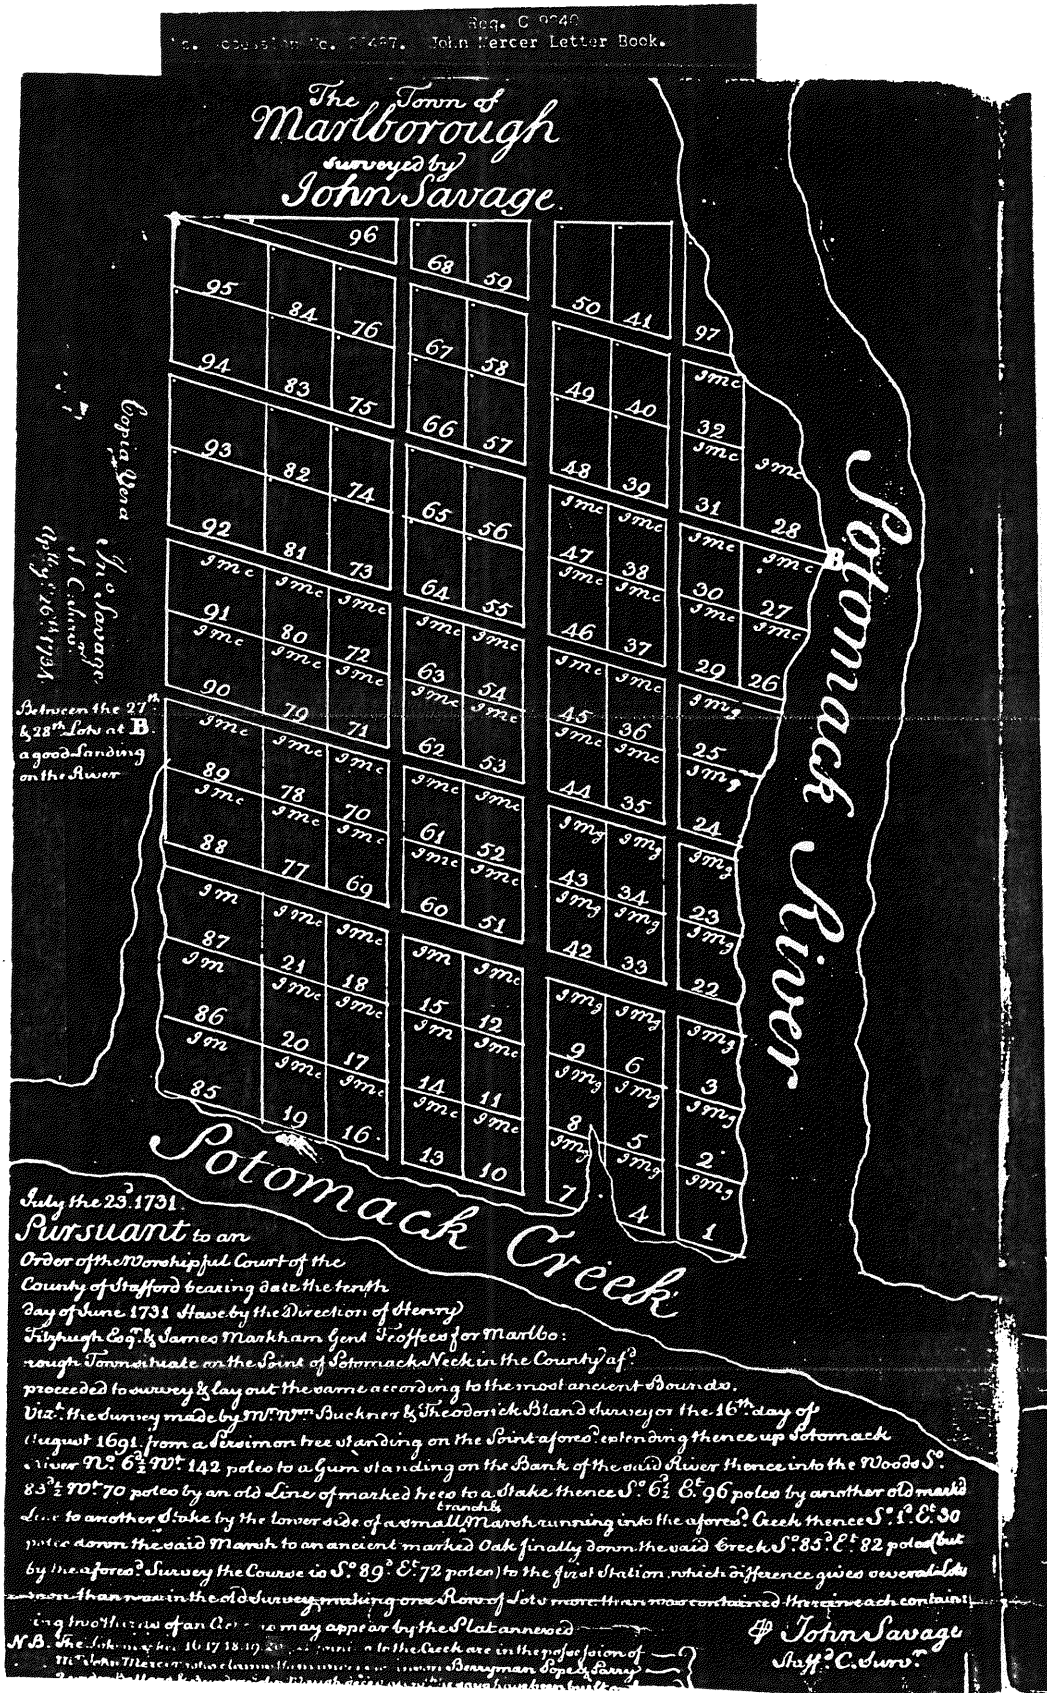 Reg. C 9040
No. Accession No. John Mercer Letter Book.
The Town of
Marlborough
surveyed by
John Savage.
96
68 59
50 41 97
95 84 76
67 58
49 40 32
94 83 75
66 57
48 39 31 28
93 82 74
65 56
47 38 30 27
92 81 73
64 55
46 37 29 26
91 80 72
63 54
45 36 25
90 79 71
62 53
44 35 24
89 78 70
61 52
43 34 23
88 77 69
60 51
42 33 22
87 21 18
15 12
9 6 3
86 20 17
14 11
8 5 2
85 19 16
13 10
7 4 1
Jmc Jmc Jmc
Jmg Jmg Jmg
Jm Jm Jm
B
Copia Vera
Jno Savage
S. C. Surv.r
Between the 27th
& 28th Lots at B.
a good Landing
on the River
Potomack River
Potomack Creek
July the 23d. 1731.
Pursuant to an
Order of the Worshipful Court of the
County of Stafford bearing date the tenth
day of June 1731 Have by the Direction of Henry
Fitzhugh Esqr. & James Markham Gent Feoffees for Marlbo:
rough Town situate on the Point of Potomack Neck in the County afd.
proceeded to survey & lay out the same according to the most ancient Bounds.
Vizt. the Survey made by Mr. Wm Buckner & Theodorick Bland Surveyor the 16th day of
August 1691. from a Persimon tree standing on the Point aforesd. extending thence up Potomack
River No. 6d½ Wt. 142 poles to a Gum standing on the Bank of the said River thence into the Woods So.
83d½ Wt 70 poles by an old Line of marked trees to a Stake thence So 6d½ Et. 96 poles by another old markd
branch &
Line to another Stake by the lower side of a small Marsh running into the aforesd. Creek thence So. 1d. Et. 30
poles down the said Marsh to an ancient marked Oak finally down the said Creek So 85d. Et. 82 poles (but
by the aforesd. Survey the Course is So. 89d. Et. 72 poles) to the first Station, which difference gives several Lots
more than was in the old Survey, making one Row of Lots more than was contained therein each contain:
ing two thirds of an Acre may appear by the Plat annexed
₱ John Savage
Staffd. C. Survr.
N.B. The 16 17 18 19 20 to the Creek are in the possession of
Mr. John Mercer who claims Berryman Pope & Parry